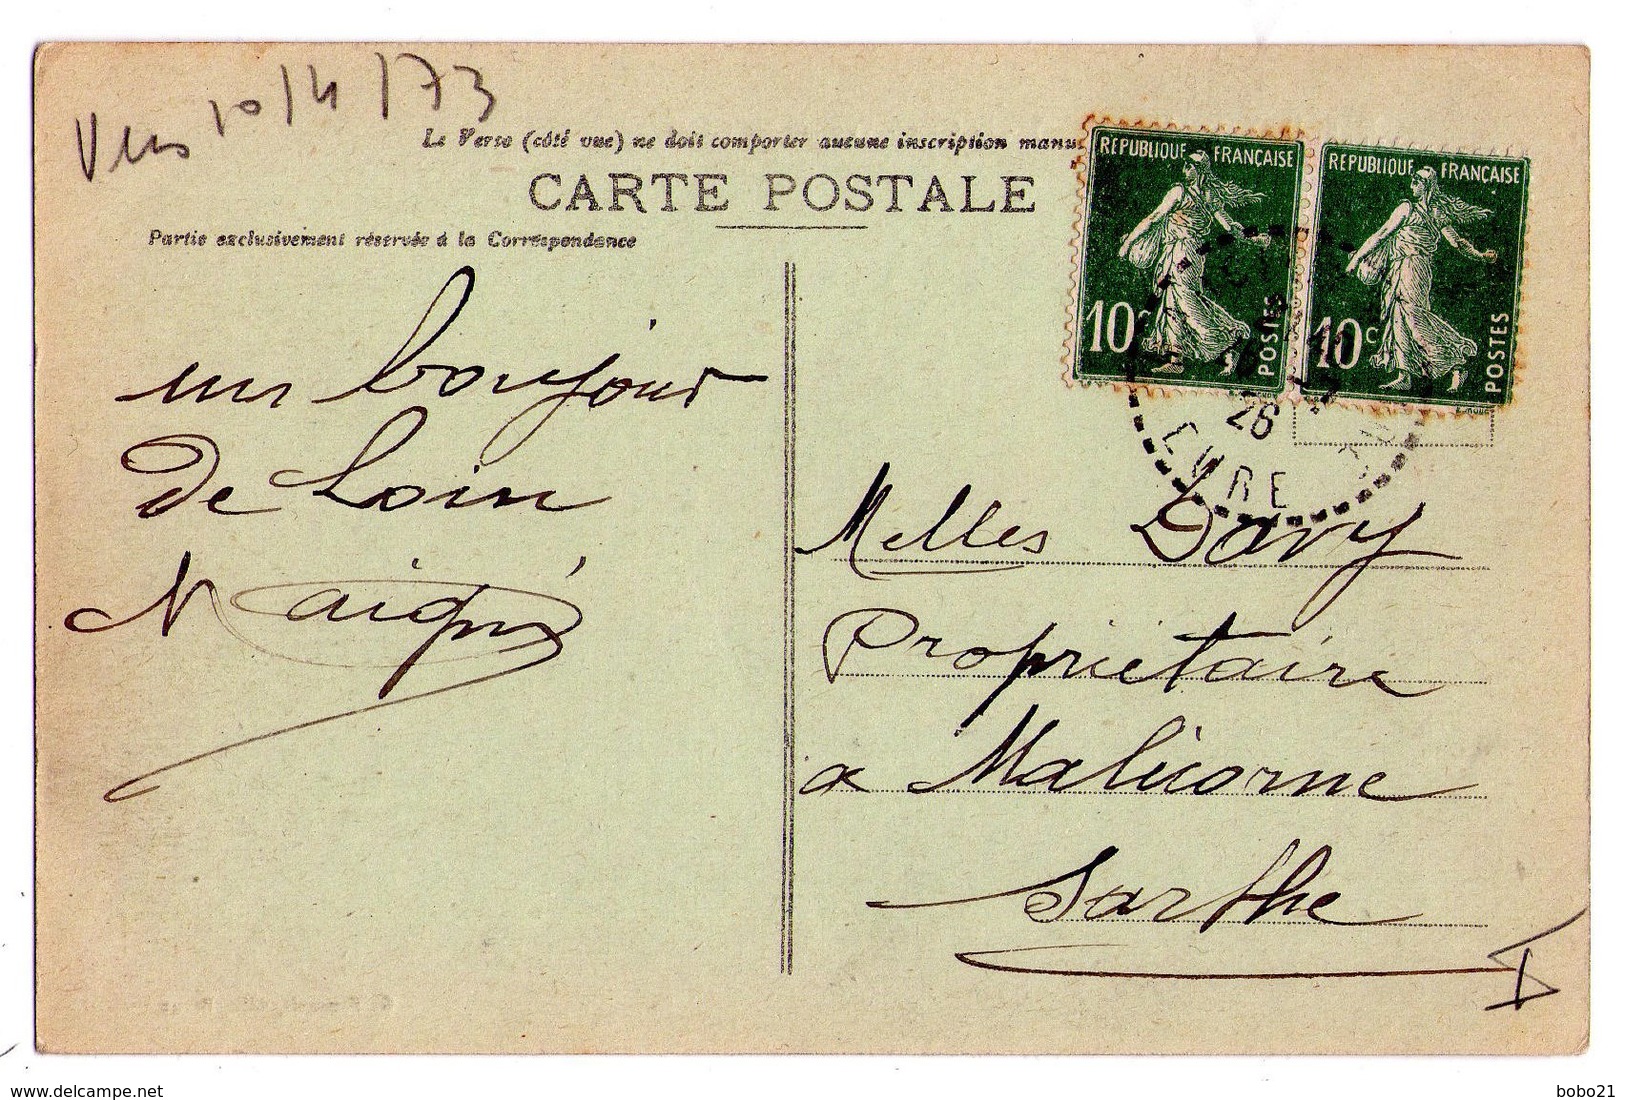 10/4/73
Le Verso (côté vue) ne doit comporter aucune inscription manu
CARTE POSTALE
Partie exclusivement réservée à la Correspondance
REPUBLIQUE FRANÇAISE
10c
POSTES
REPUBLIQUE FRANÇAISE
10c
POSTES
26
EURE
un bonjour
de Loin
Melles Davy
Propriétaire
a Malicorne
Sarthe
delcampe.net
bobo21